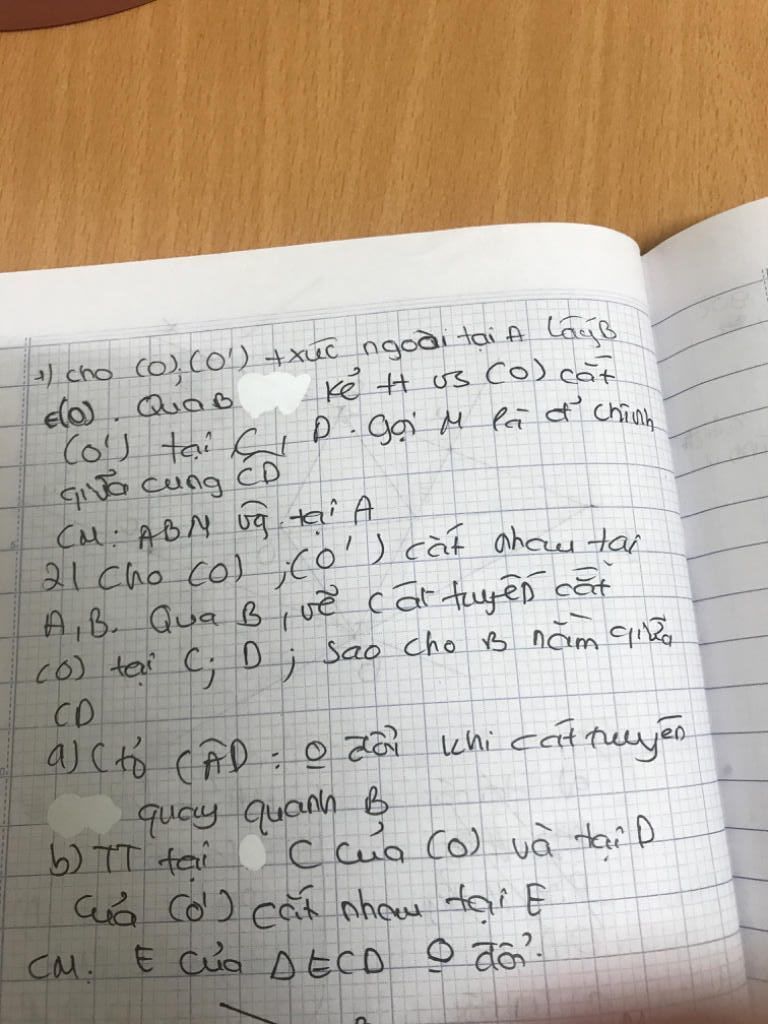 1) cho (O); (O') t xúc ngoài tại A lấy B
∈(O). Qua B kẻ tt vs (O) cắt
(O') tại C, D. gọi M là đ' chính
giữa cung CD
CM: ABM vg tại A
2) Cho (O), (O') cắt nhau tại
A, B. Qua B, vẽ cát tuyến cắt
(O) tại C; D; sao cho B nằm giữa
CD
a) C tỏ CAD: 0 đổi khi cát tuyến
quay quanh B
b) TT tại C của (O) và tại D
của (O') cắt nhau tại E
CM. E của ΔECD 0 đổi.